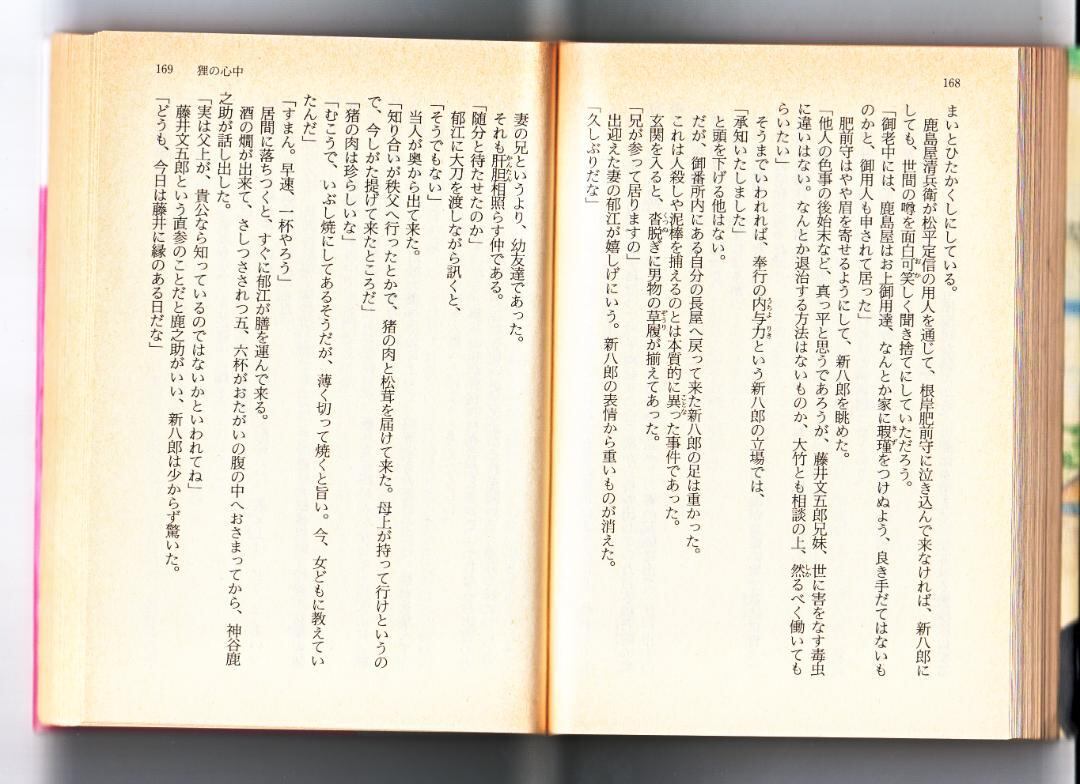 168
まいとひたかくしにしている。
鹿島屋清兵衛が松平定信の用人を通じて、根岸肥前守に泣き込んで来なければ、新八郎に
しても、世間の噂を面白可笑しく聞き捨てにしていただろう。
「御老中には、鹿島屋はお上御用達、なんとか家に瑕瑾をつけぬよう、良き手だてはないも
のかと、御用人も申されて居った」
肥前守はやや眉を寄せるようにして、新八郎を眺めた。
「他人の色事の後始末など、真っ平と思うであろうが、藤井文五郎兄妹、世に害をなす毒虫
に違いはない。なんとか退治する方法はないものか、大竹とも相談の上、然るべく働いても
らいたい」
そうまでいわれれば、奉行の内与力という新八郎の立場では、
「承知いたしました」
と頭を下げる他はない。
だが、御番所内にある自分の長屋へ戻って来た新八郎の足は重かった。
これは人殺しや泥棒を捕えるのとは本質的に異った事件であった。
玄関を入ると、沓脱ぎに男物の草履が揃えてあった。
「兄が参って居りますの」
出迎えた妻の郁江が嬉しげにいう。新八郎の表情から重いものが消えた。
「久しぶりだな」
169 狸の心中
妻の兄というより、幼友達であった。
それも肝胆相照らす仲である。
「随分と待たせたのか」
郁江に大刀を渡しながら訊くと、
「そうでもない」
当人が奥から出て来た。
「知り合いが秩父へ行ったとかで、猪の肉と松茸を届けて来た。母上が持って行けというの
で、今しがた提げて来たところだ」
「猪の肉は珍らしいな」
「むこうで、いぶし焼にしてあるそうだが、薄く切って焼くと旨い。今、女どもに教えてい
たんだ」
「すまん。早速、一杯やろう」
居間に落ちつくと、すぐに郁江が膳を運んで来る。
酒の燗が出来て、さしつさされつ五、六杯がおたがいの腹の中へおさまってから、神谷鹿
之助が話し出した。
「実は父上が、貴公なら知っているのではないかといわれてね」
藤井文五郎という直参のことだと鹿之助がいい、新八郎は少からず驚いた。
「どうも、今日は藤井に縁のある日だな」